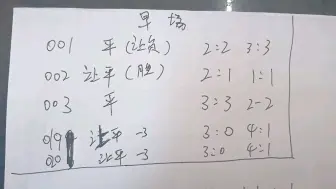 早场
001 平(让负) 2:2 3:3
002 让平(胜) 2:1 1:1
003 平 3:3 2-2
019 让平 -3 3:0 4:1
020 让平 -3 3:0 4:1